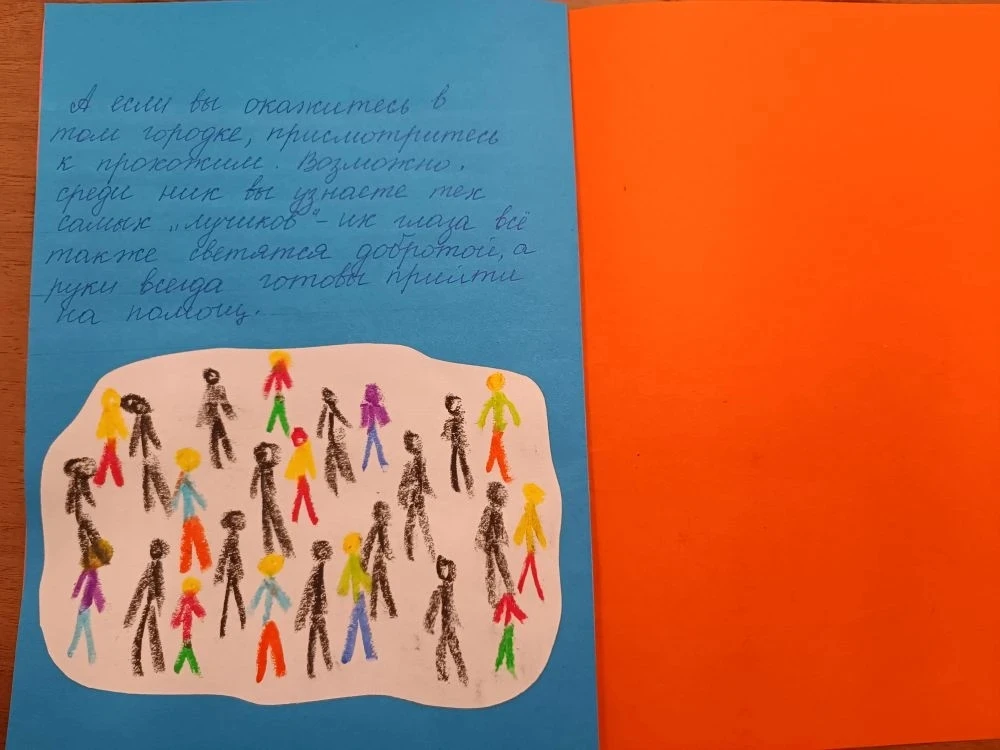 А если вы окажитесь в
том городке, присмотритесь
к прохожим. Возможно,
среди них вы узнаете тех
самых „лучиков" - их глаза всё
также светятся добротой, а
руки всегда готовы прийти
на помощ.